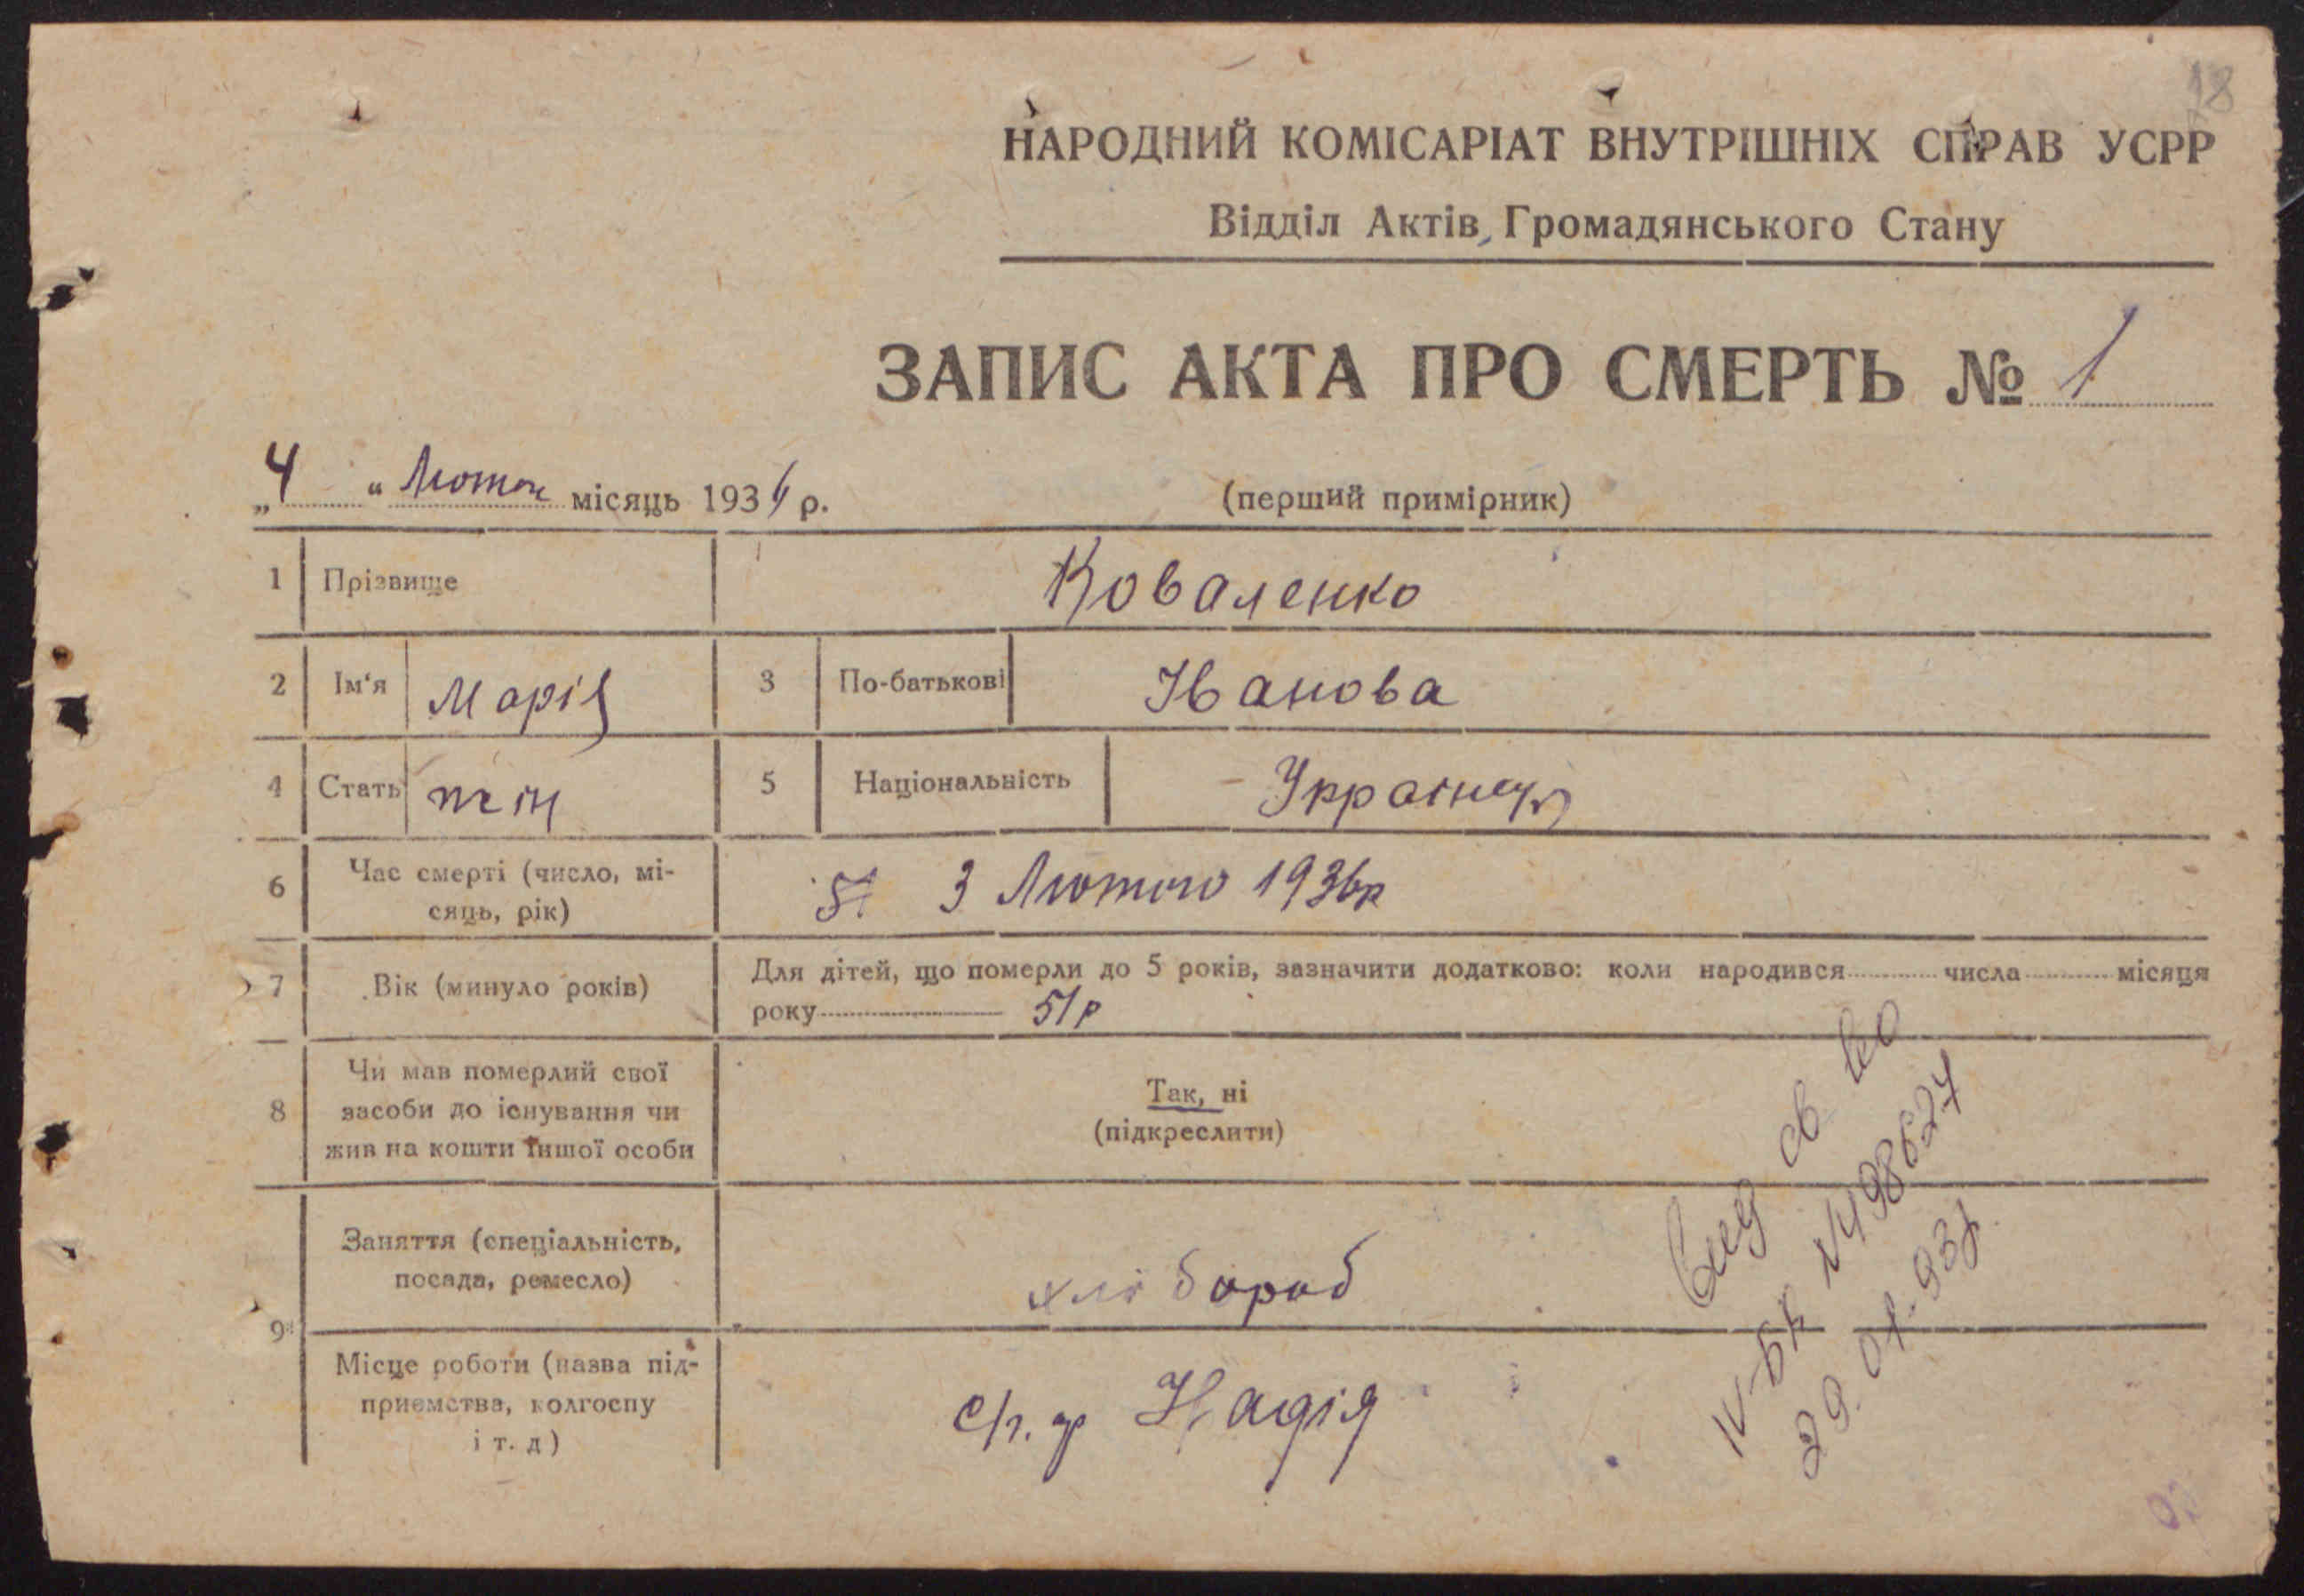 18
НАРОДНИЙ КОМІСАРІАТ ВНУТРІШНІХ СПРАВ УСРР
Відділ Актів Громадянського Стану
ЗАПИС АКТА ПРО СМЕРТЬ № 1
„4“ Лютого місяць 1936 р.
(перший примірник)
1 Прізвище Коваленко
2 Ім'я Марія 3 По-батькові Іванова
4 Стать жін 5 Національність Українка
6 Час смерті (число, мі-
сяць, рік) 3 Лютого 1936р
7 Вік (минуло років) Для дітей, що померли до 5 років, зазначити додатково: коли народився числа місяця
року 51р
8 Чи мав померлий свої
засоби до існування чи
жив на кошти іншої особи
Так, ні
(підкреслити)
9 Заняття (спеціальність,
посада, ремесло) хлібороб
Місце роботи (назва під-
приємства, колгоспу
і т. д) с/г. ар Надія